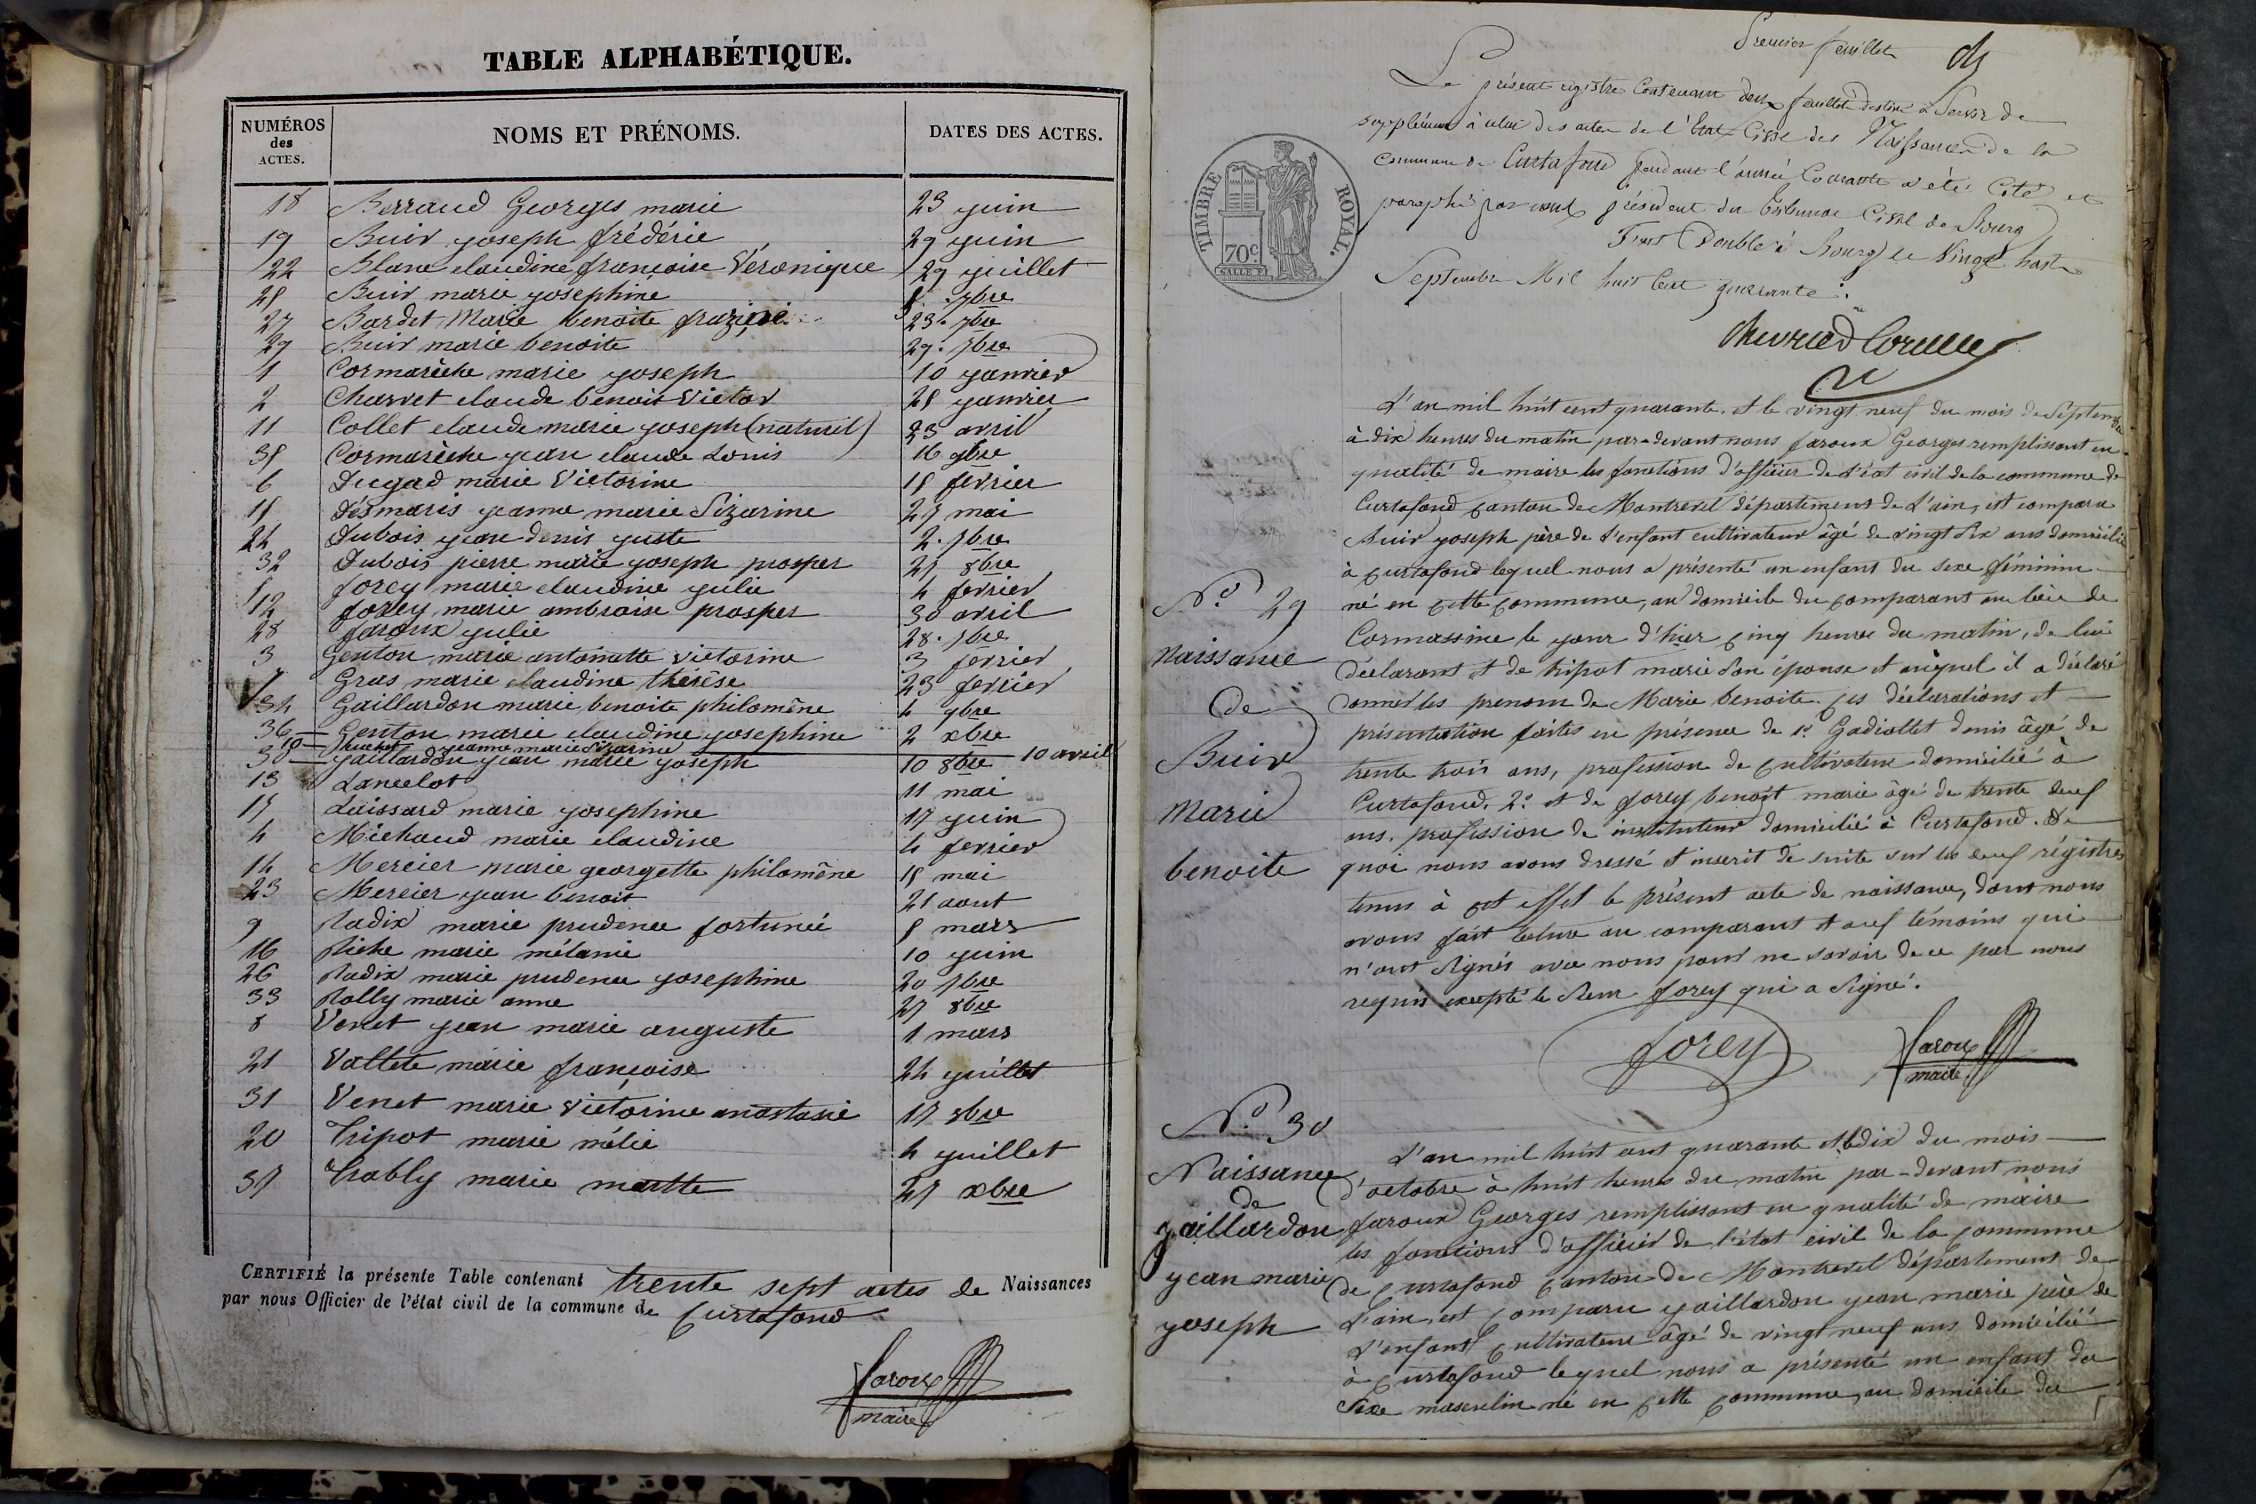 TABLE ALPHABÉTIQUE.
NUMÉROS des ACTES. NOMS ET PRÉNOMS. DATES DES ACTES.
18 Berraud Georges marie 23 juin
19 Buir joseph frédéric 29 juin
22 Blanc claudine françoise Véronique 29 juillet
25 Buir marie josephine 7bre
27 Bardet Marie benoite 23. 7bre
29 Buir marie benoite 29. 7bre
1 Cormarèche marie joseph 10 janvier
2 Charvet claude benoit Victor 25 janvier
11 Collet claude marie joseph (naturel) 23 avril
35 Cormarèche jean claude Louis 16 9bre
6 Dugad marie Victorine 15 fevrier
15 Désmaris jeanne marie Sizarine 27 mai
24 Dubois jean denis juste 2. 7bre
32 Dubois pierre marie joseph prosper 21 8bre
5 forey marie claudine julie 4 fevrier
12 forey marie ambroise prosper 30 avril
28 faroux julie 28. 7bre
3 Genton marie antoinette victorine 3 fevrier
7 Gras marie claudine thérèse 23 fevrier
34 Gaillardon marie benoite philomène 4 9bre
36 Genton marie claudine josephine 2 xbre
10 jeanne marie Sizarine 10 avril
30 gaillardon jean marie joseph 10 8bre
13 Lancelot 11 mai
17 Luissard marie josephine 17 juin
4 Michaud marie claudine 4 fevrier
14 Mercier marie georgette philomène 15 mai
23 Mercier jean benoit 21 aout
9 Radix marie prudence fortunée 5 mars
16 Riche marie mélanie 10 juin
26 Radix marie prudence josephine 20 7bre
33 Rolly marie anne 27 8bre
8 Venet jean marie auguste 1 mars
21 Vallete marie françoise 24 juillet
31 Venet marie victorine anastasie 17 8bre
20 Tripot marie mélie 4 juillet
37 Trably marie marthe 27 xbre
CERTIFIÉ la présente Table contenant trente sept actes de Naissances
par nous Officier de l'état civil de la commune de Curtafond
faroux
maire
Premier feuillet
Le présent registre Contenant deux feuillets destiné à Servir de
supplément à celui des actes de l'Etat Civil des Naissances de la
Commune de Curtafond pendant l'année Courante a été Coté et
paraphé par nous président du tribunal Civil de Bourg
Fait Double à Bourg le Vingt huit
Septembre Mil huit Cent quarante.
TIMBRE ROYAL.
70c
L'an mil huit cent quarante. et le vingt neuf du mois de Septembre
à dix heures du matin par-devant nous faroux Georges remplissant en
qualité de maire les fonctions d'officier de l'état civil de la commune de
Curtafond canton de Montrevel département de L'ain, est comparu
Buir joseph père de l'enfant cultivateur âgé de vingt six ans domicilié
à Curtafond lequel nous a présenté un enfant du sexe féminin
né en cette commune, au domicile du comparant au lieu de
Cormassine le jour d'hier cinq heures du matin, de lui
déclarant et de tripot marie son épouse et auquel il a déclaré
donner les prenom de Marie benoite. ces déclarations et
présentation faites en présence de 1° Gadiollet denis âgé de
trente trois ans, profession de cultivateur domicilié à
Curtafond. 2° et de forey benoit marie âgé de trente deuf
ans. profession de instituteur domicilié à Curtafond. De
quoi nous avons dressé et inscrit de suite sur les deuf régistres
tenus à cet effet le présent acte de naissance, dont nous
avons fait lecture au comparant et auf témoins qui
n'ont signés avec nous pour ne savoir de ce par nous
requis excepté le Sieur forey qui a Signé.
forey faroux
maire
N° 29
Naissance
De
Buir
Marie
benoite
N° 30
Naissance
de
gaillardon
jean marie
joseph
L'an mil huit cent quarante et le dix du mois
d'octobre à huit heures du matin par-devant nous
faroux Georges remplissant en qualité de maire
les fonctions d'officier de l'état civil de la commune
de Curtafond Canton de Montrevel département de
L'ain, est comparu gaillardon jean marie père de
L'enfant cultivateur âgé de vingt neuf ans domicilié
à Curtafond lequel nous a présenté un enfant du
Sexe masculin né en cette commune, au domicile du